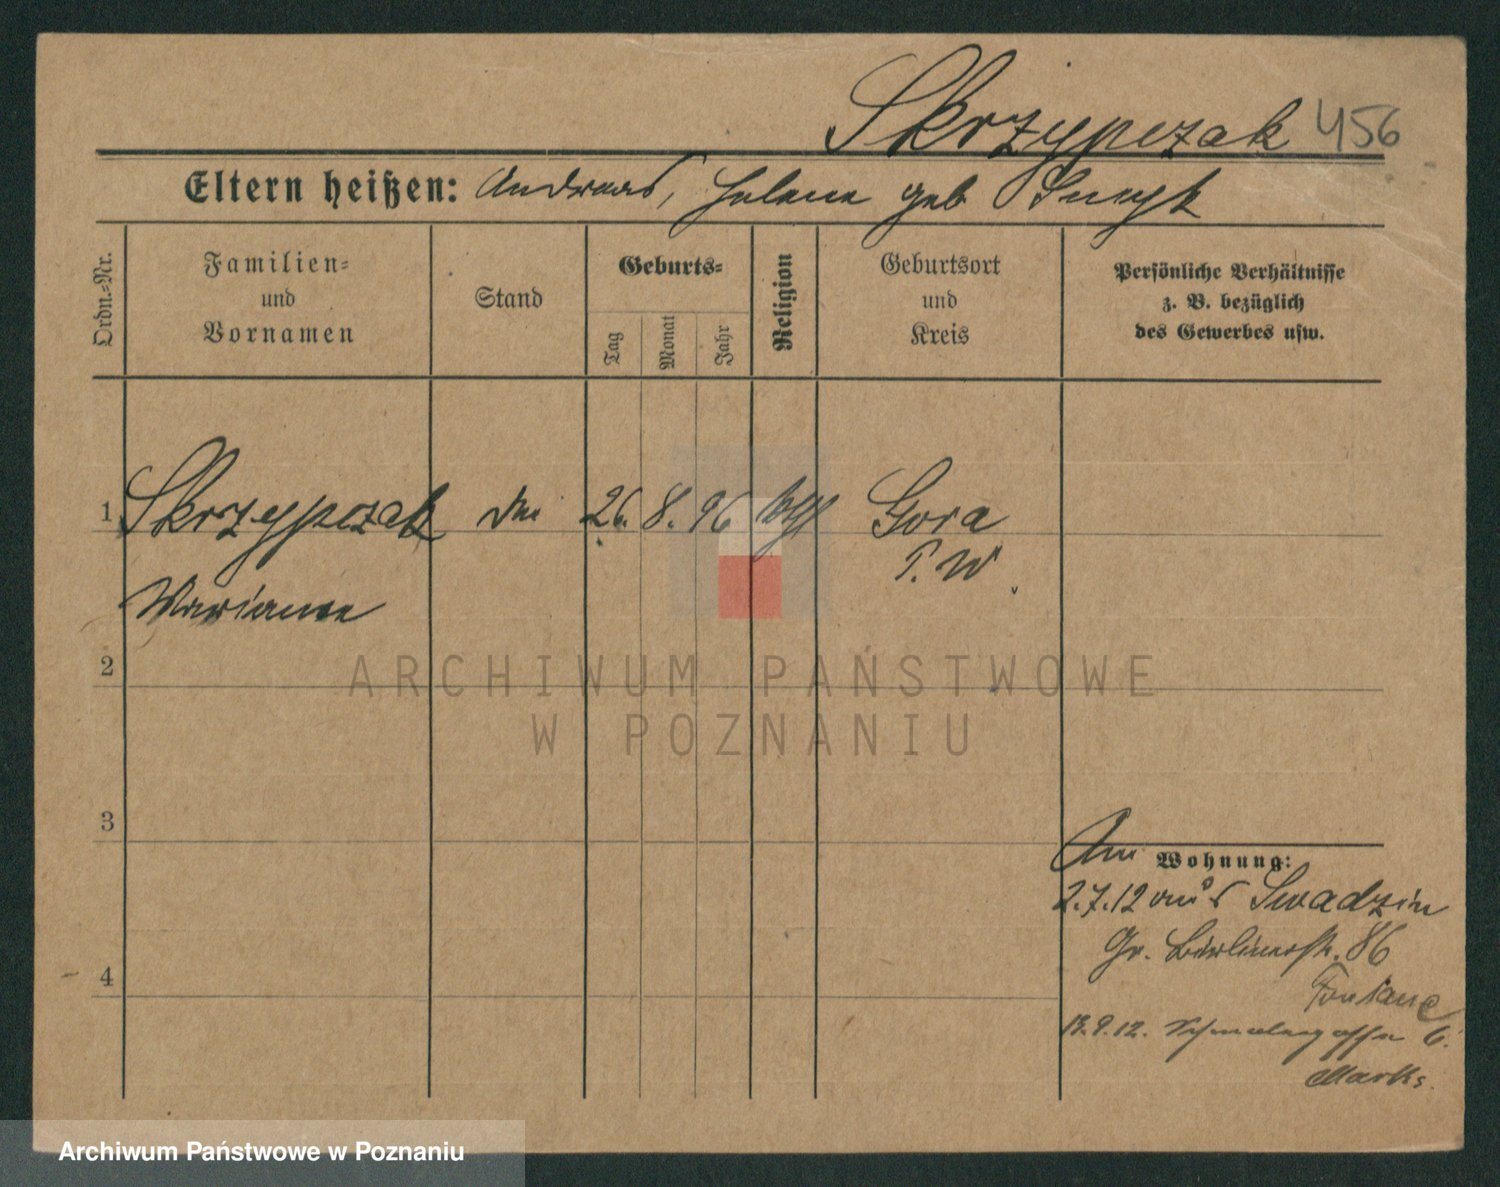 Skrzypczak 456
Eltern heißen: Andreas, Helene geb
Ordn.-Nr.
Familien-
und
Vornamen
Stand
Geburts-
Tag
Monat
Jahr
Religion
Geburtsort
und
Kreis
Persönliche Verhältnisse
z. B. bezüglich
des Gewerbes usw.
1 Skrzypczak 26. 8. 96 Gora
P. W
Marianne
2
ARCHIWUM PAŃSTWOWE
W POZNANIU
3
Am Wohnung:
2.7.12 aus Swadzim
Gr. Berlinerstr. 86
Fontane
13.9.12. 6.
Marks.
4
Archiwum Państwowe w Poznaniu